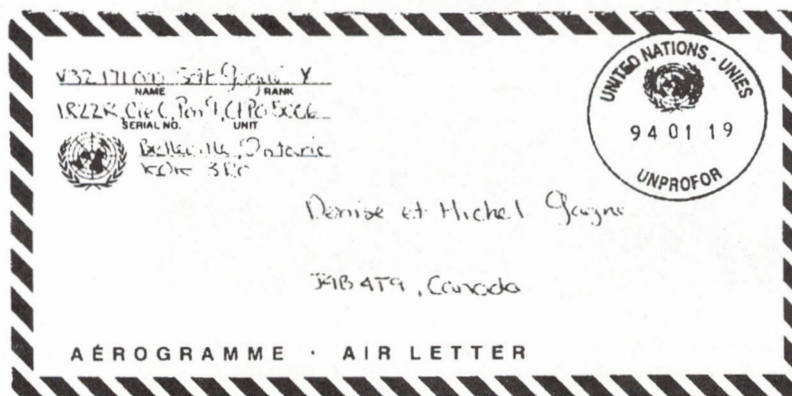 V32 171 Sdt Gagné Y
NAME / RANK
1R22R, Cie C, Pon 9, CFPO 5006
SERIAL NO. UNIT
Belleville, Ontario
K0K 3E0
UNITED NATIONS - UNIES
94 01 19
UNPROFOR
Denise et Michel Gagné
J4B 4T9, Canada
AÉROGRAMME · AIR LETTER